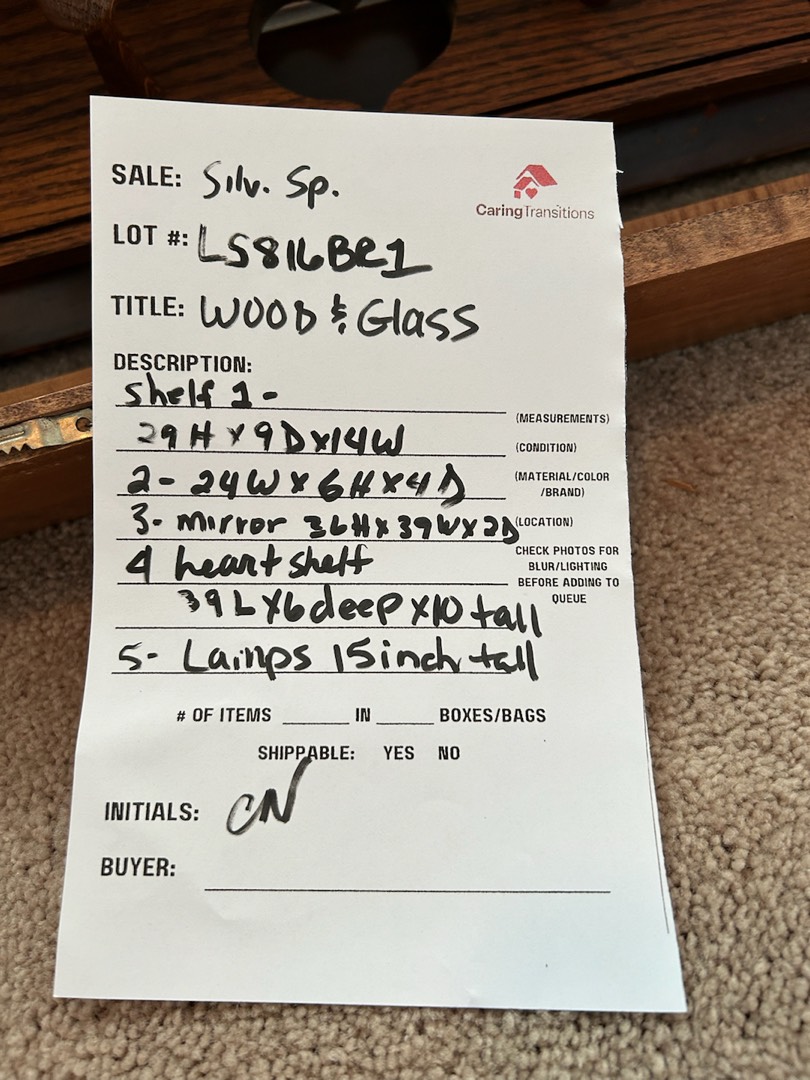 SALE: Silv. Sp.
CaringTransitions
LOT #: LS816BR1
TITLE: WOOD & Glass
DESCRIPTION:
Shelf 1-
(MEASUREMENTS)
29H x 9D x 14W
(CONDITION)
2- 24W x 6H x 4D
(MATERIAL/COLOR
/BRAND)
3- mirror 36H x 39W x 2D
(LOCATION)
4 heart shelf
CHECK PHOTOS FOR
BLUR/LIGHTING
BEFORE ADDING TO
QUEUE
39 L X 6 deep X 10 tall
5- Lamps 15 inch tall
# OF ITEMS ______ IN ______ BOXES/BAGS
SHIPPABLE: YES NO
INITIALS: CN
BUYER: